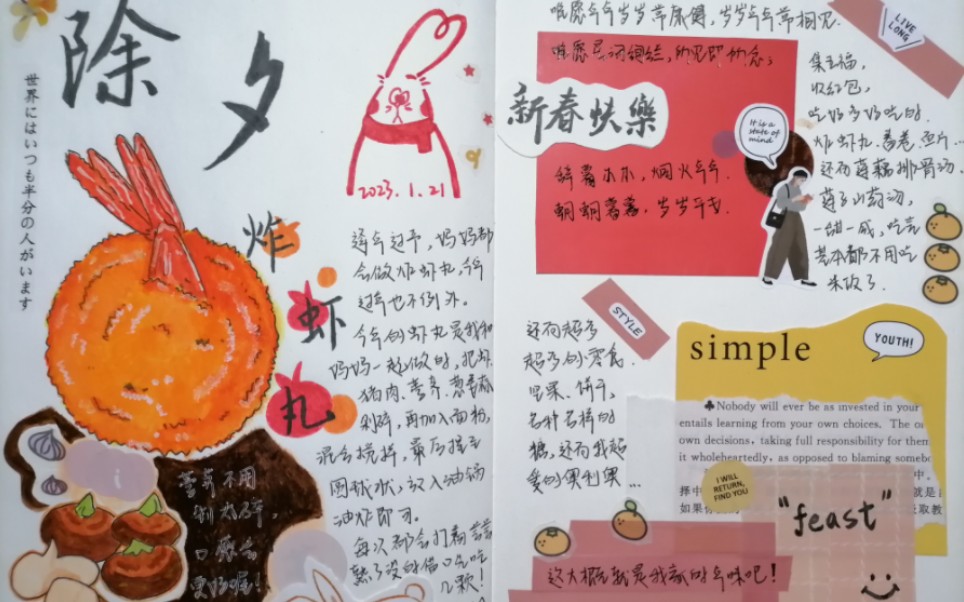 除夕
世界にはいつも半分の人がいます
2023.1.21
炸虾丸
逢年过节，妈妈都
会做炸虾丸，今年
过年也不例外。
今年的虾丸是我和
妈妈一起做的，把虾、
猪肉、荸荠、葱香菇
剁碎，再加入面粉，
混合搅拌，最后搓成
圆球状，放入油锅
油炸即可。
每次都会打着尝尝
熟了没的借口先吃
几颗！
荸荠不用
剁太碎，
口感会
更好喔！
唯愿年年岁岁常康健，岁岁年年常相见.
新春快樂
辞暮尔尔，烟火年年.
朝朝暮暮，岁岁平安.
It is a
state of
mind
LIVE
LONG
集五福，
收红包，
吃好多好吃的.
炸虾丸、春卷、鱼片...
还有莲藕排骨汤、
一甜一咸，吃完
基本都不用吃
米饭了.
STYLE
还有超多
超多的零食.
坚果、饼干、
各种各样的
糖，还有我超
爱的奥利奥...
simple
YOUTH!
♣Nobody will ever be as invested in your
entails learning from your own choices. The
own decisions, taking full responsibility for them
it wholeheartedly, as opposed to blaming
I WILL
RETURN,
FIND YOU
"feast"
这大概就是我家的年味吧！